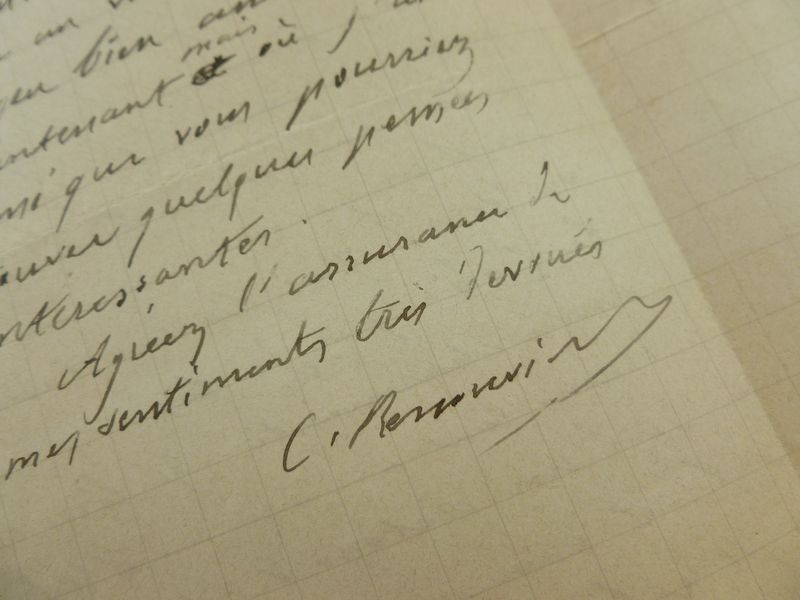 un
bien
mais
maintenant où
que vous pourriez
trouver quelques pensées
intéressantes.
Agréez l'assurance de
mes sentiments très dévoués
C. Renouvier